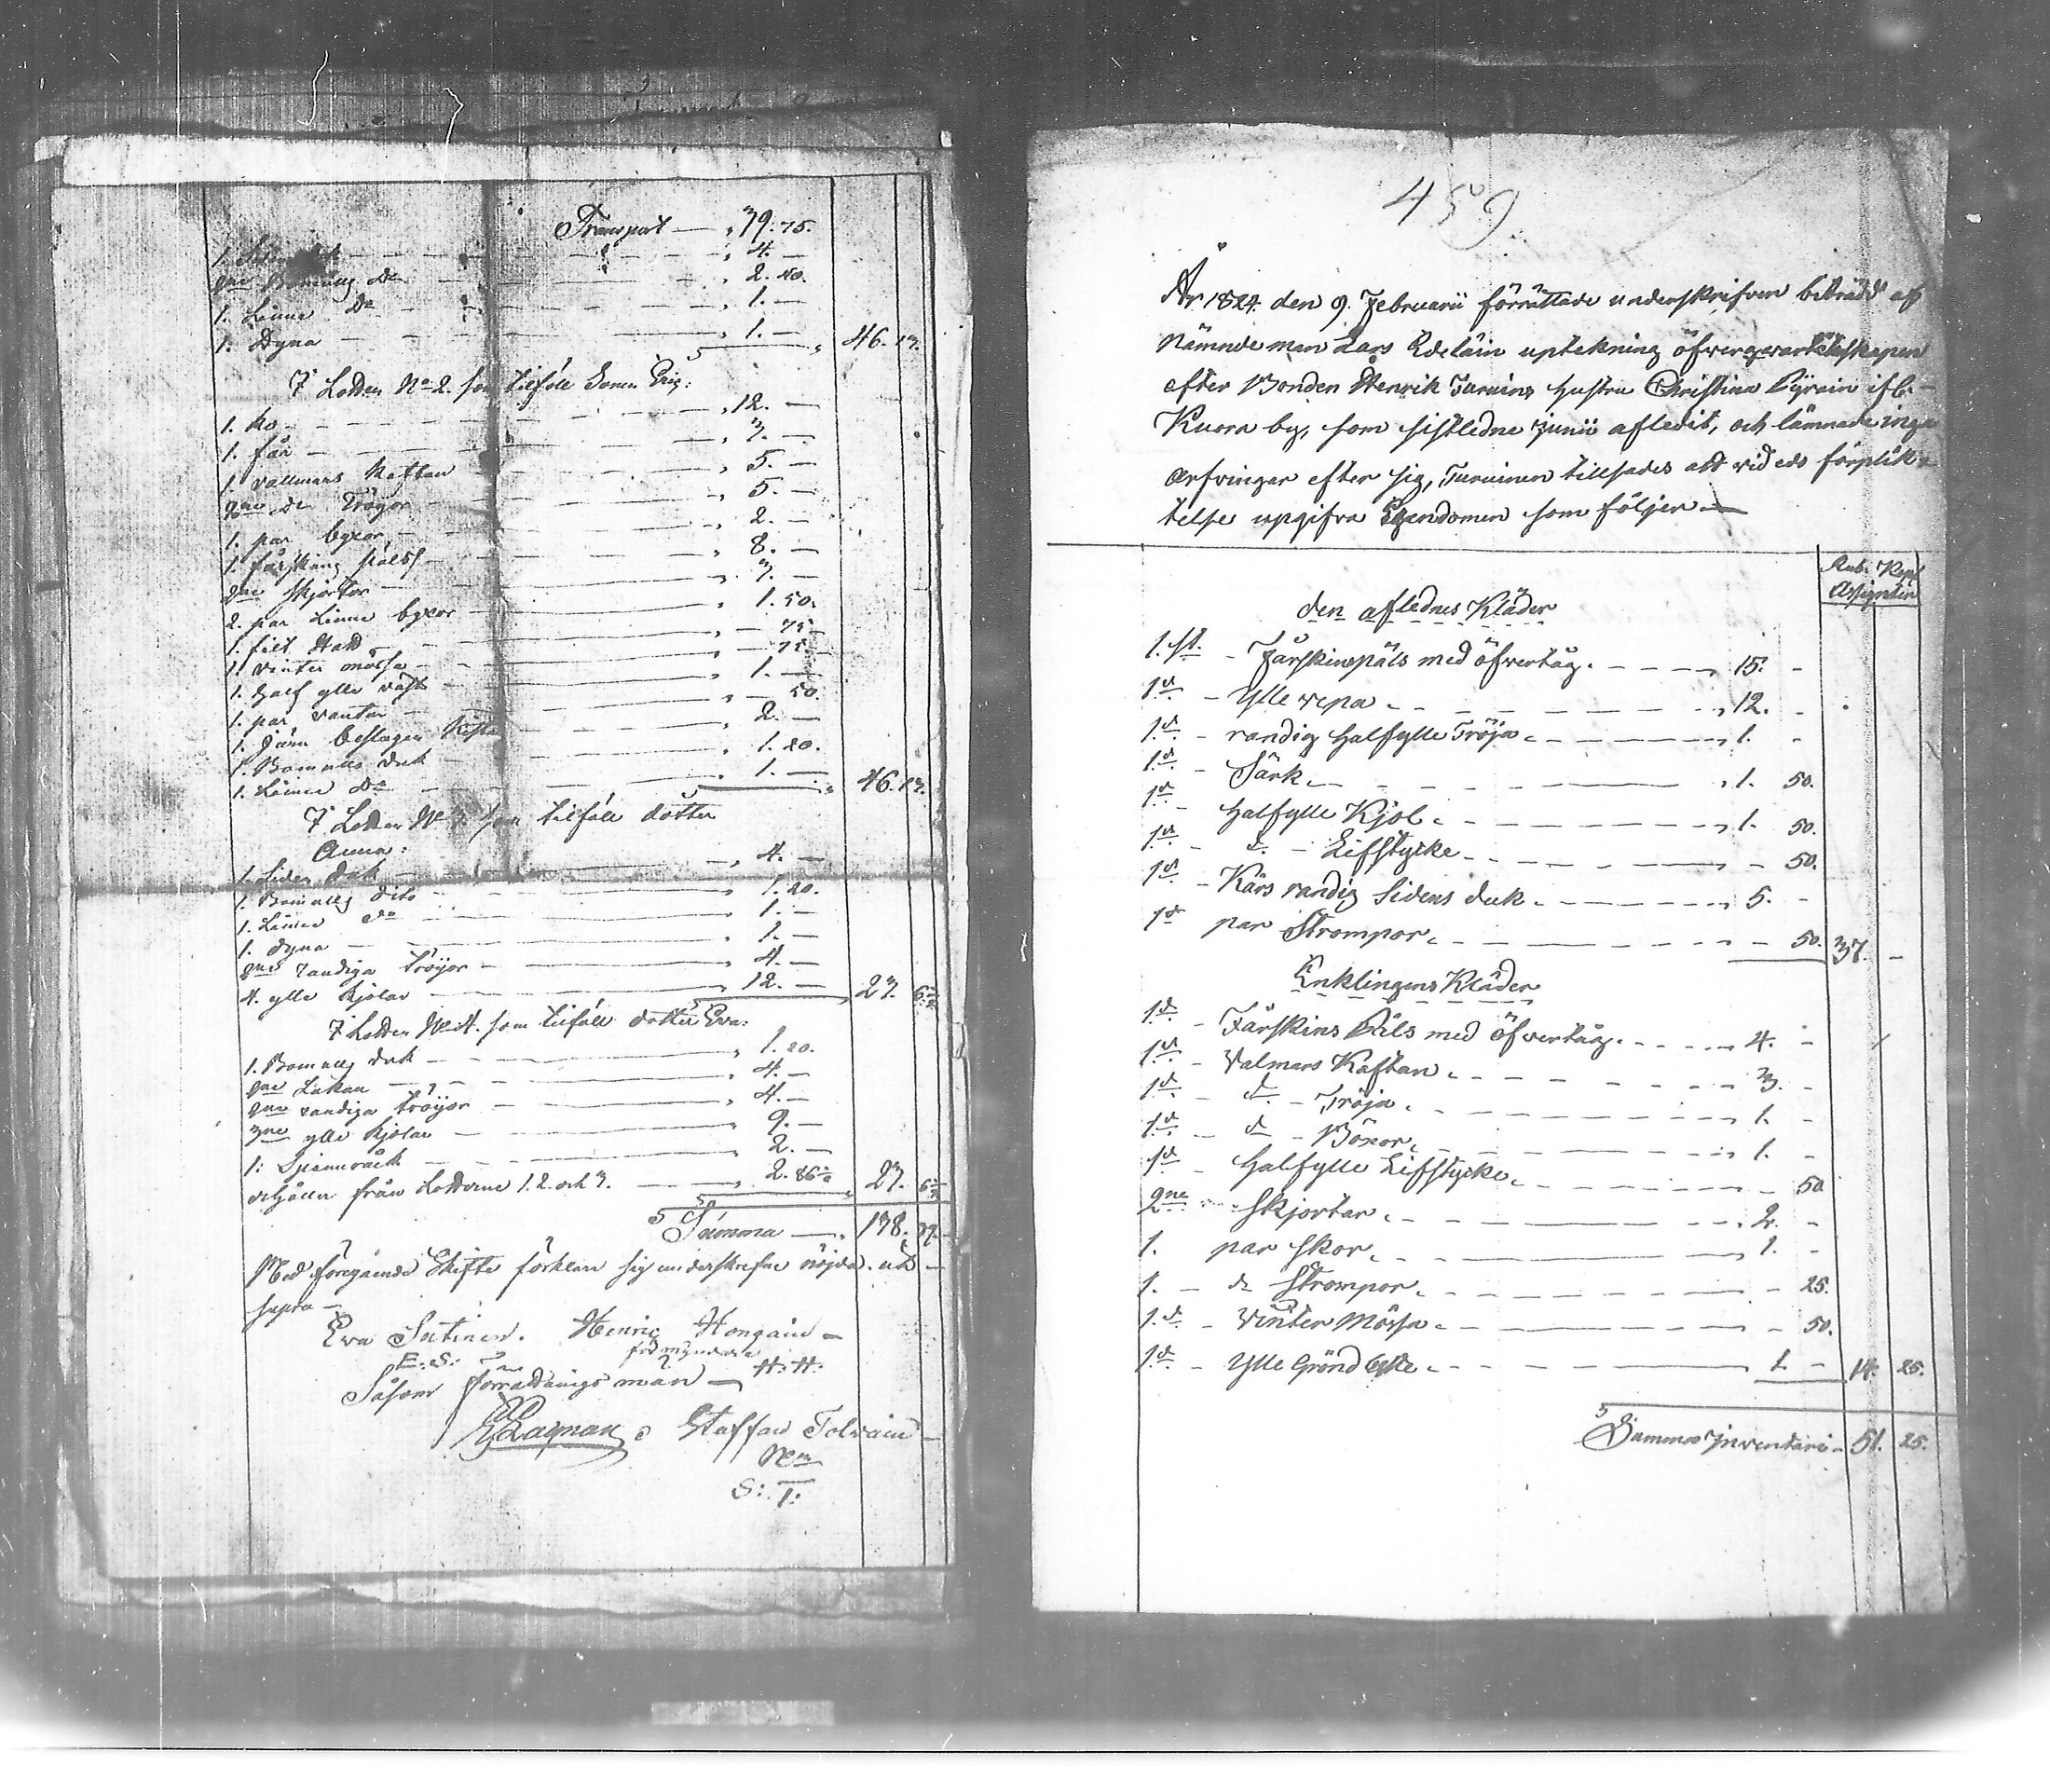 Transport — 39. 75.
1. Siden duk — 4. —
2ne Bomulls do — 2. 40.
1. Linne do — 1. —
1. Dyna — 1. — 46. 13.
I Lotten No 2. som tilföll Sonen Eric:
1. Ko — 12. —
1. får — 3. —
1. vallmars Kaftan — 5. —
2ne do Tröyor — 5. —
1. par byxor — 2. —
1. fårskins päls — 8. —
2ne skjortor — 3. —
2. par Linne byxor — 1. 50.
1. filt Hatt — 75
1. vinter mössa — 75
1. half ylle väst — 1. —
1. par vantar — 50.
1. Järn beslagen Kista — 2. —
1. Bomulls duk — 1. 20.
1. Linne do — 1. — 46. 13.
I Lotten No 3. som tilföll dotter
Anna:
1. Siden duk — 4. —
1. Bomulls dito — 1. 20.
1. Linne do — 1. —
1. dyna — 1. —
2ne randiga tröyor — 4. —
4. ylle Kjolar — 12. — 23. 6
I Lotten No 4. som tilföll dotter Eva:
1. Bomulls duk — 1. 20.
2ne Lakan — 4. —
2ne randiga tröyor — 4. —
3ne ylle Kjolar — 9. —
1: — 2. —
erhåller från Lotterne 1. 2. och 3. — 2. 86 23. 6
Summa — 138. 39.
Med föregående Skifte förklara sig underskrefne nöjda. ut
supra —
Eva Sutinen. Henric Hongain —
E: S: förmyndare
Såsom förrättnings män — H: H:
Lagman Staffan Tolvain —
Nm
S: T:
459
År 1824. den 9. Februarii förrättade underskrifven biträdd af
Nämndeman Lars Edelain uptekning öfver qvarlåtenskapen
efter Bonden Henrik Turuins hustru Christina Pyrain ifr.
Kuora by, som sistledne Junii afledit, och lämnade inga
arfvingar efter sig, Turuinen tillsades att vid eds förplik-
telse upgifva Egendomen som följer —
Rub. Kop
Assignatir
den aflednes Kläder
1. st. - Fårskinspäls med öfvertåg. — 15. -
1 d - Ylle vepa — 12. -
1 d. - randig halfylle Tröja — 1. -
1 d. - Särk — 1. 50.
1 d - halfylle Kjol — 1. 50.
1 d - d. - Lifstycke — 50.
1 d. - Kårs randig Sidens duk — 5. -
1 d par Strompor — 50. 37. —
Enklingens Kläder
1 d. - Fårskins Päls med öfvertåg. — 4. -
1 d. - Valmars Kaftan — 3. -
1 d. - d. - Tröja — 1. -
1 d. - d - Böxor — 1. -
1 d - halfylle Lifstycke — 50
2ne - Skjortar — 2. -
1. par skor — 1. -
1. - d Strompor — 25.
1. d. - Vinter Mössa — 50.
1 d. - Ylle — 1. - 14. 25.
Summa Inventarii - 51. 25.